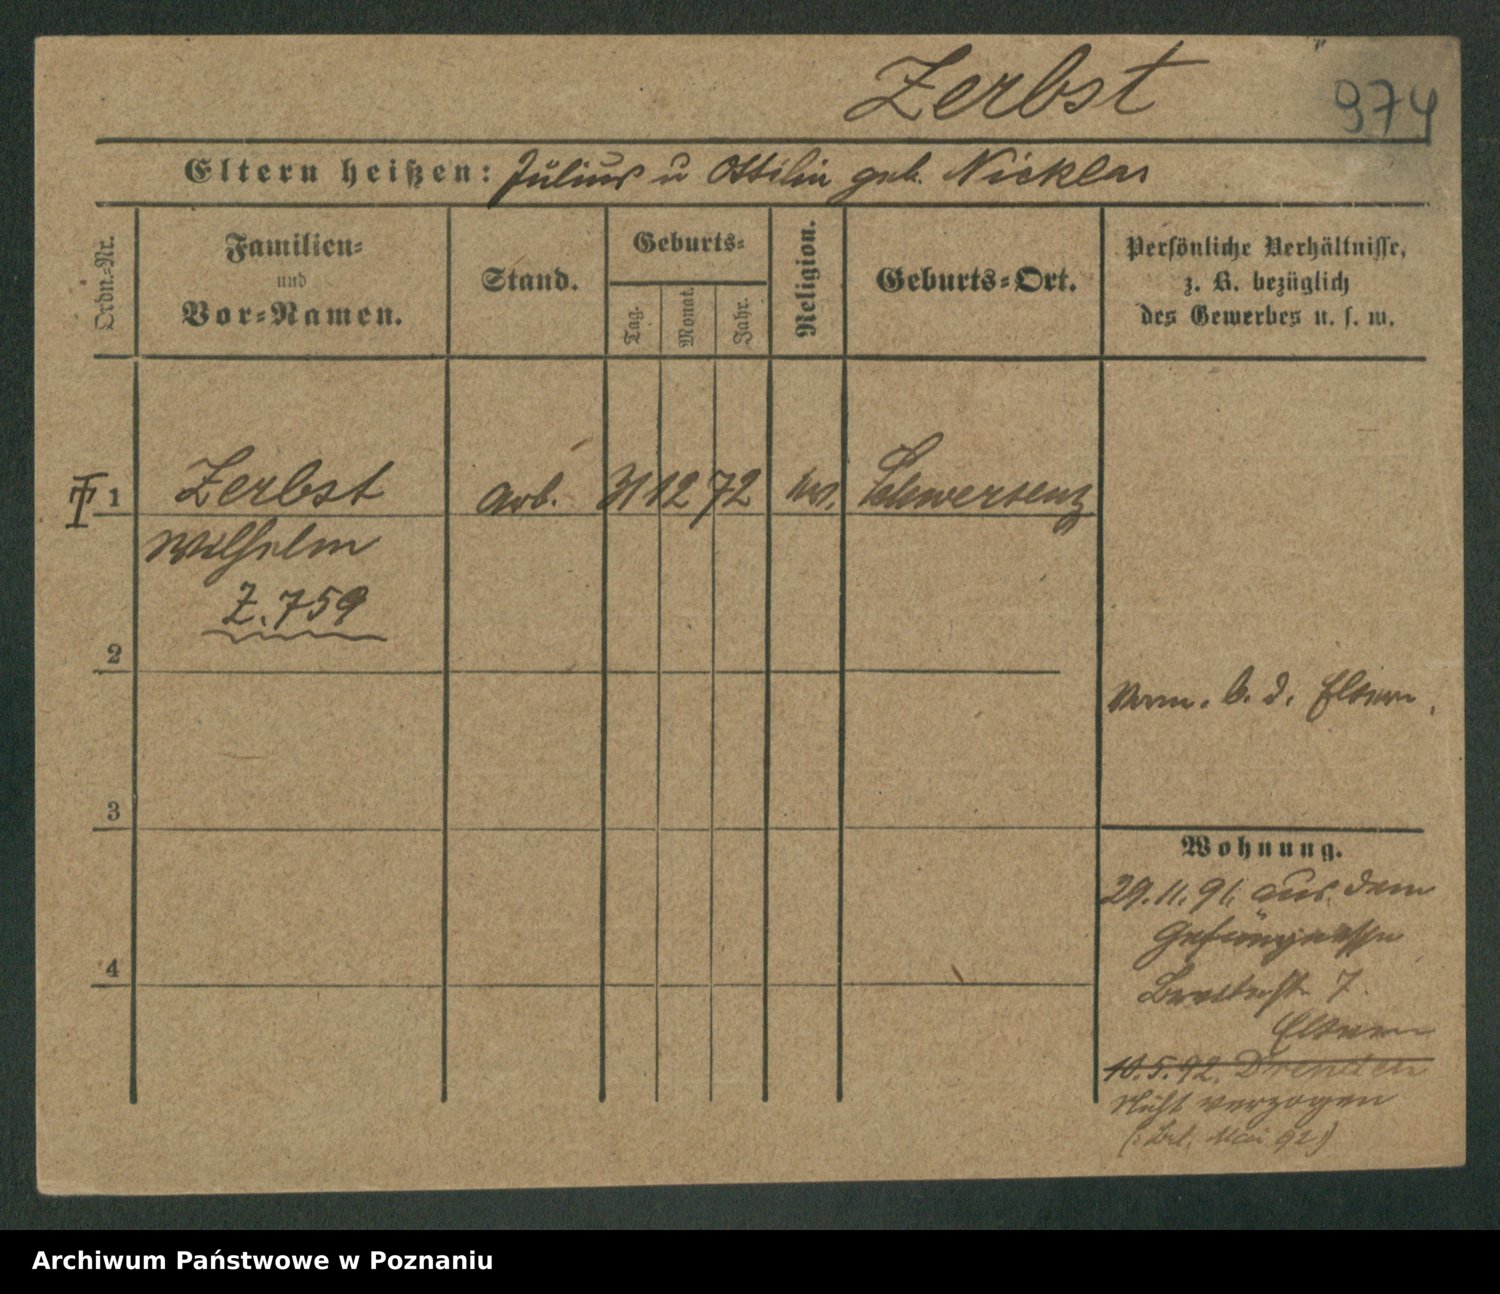 Zerbst
974
Eltern heißen: Julius u Ottilie geb. Nicklas
Ordn.-Nr.
Familien-
und
Vor-Namen.
Stand.
Geburts-
Tag.
Monat.
Jahr.
Religion.
Geburts-Ort.
Persönliche Verhältnisse,
z. B. bezüglich
des Gewerbes u. s. w.
1 Zerbst arb. 31 12 72 ev. Schwersenz
Wilhelm
Z. 759
2
b. d. Eltern.
3
Wohnung.
29.11.91. aus dem
Gefängnisse
7
Eltern
4
10.5.92. Dresden
Nicht verzogen
Mai 92
Archiwum Państwowe w Poznaniu